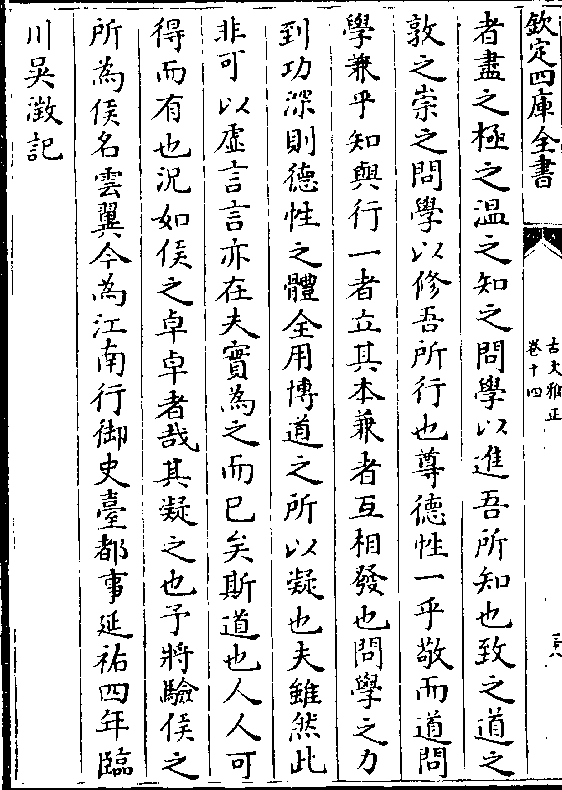 欽定四庫全書
古文雅正
卷十四
者盡之極之温之知之問學以進吾所知也致之道之
敦之崇之問學以修吾所行也尊德性一乎敬而道問
學兼乎知與行一者立其本兼者互相發也問學之力
到功深則德性之體全用博道之所以凝也夫雖然此
非可以虛言言亦在夫實為之而已矣斯道也人人可
得而有也況如侯之卓卓者哉其凝之也予將驗侯之
所為侯名雲翼今為江南行御史臺都事延祐四年臨
川吳澂記